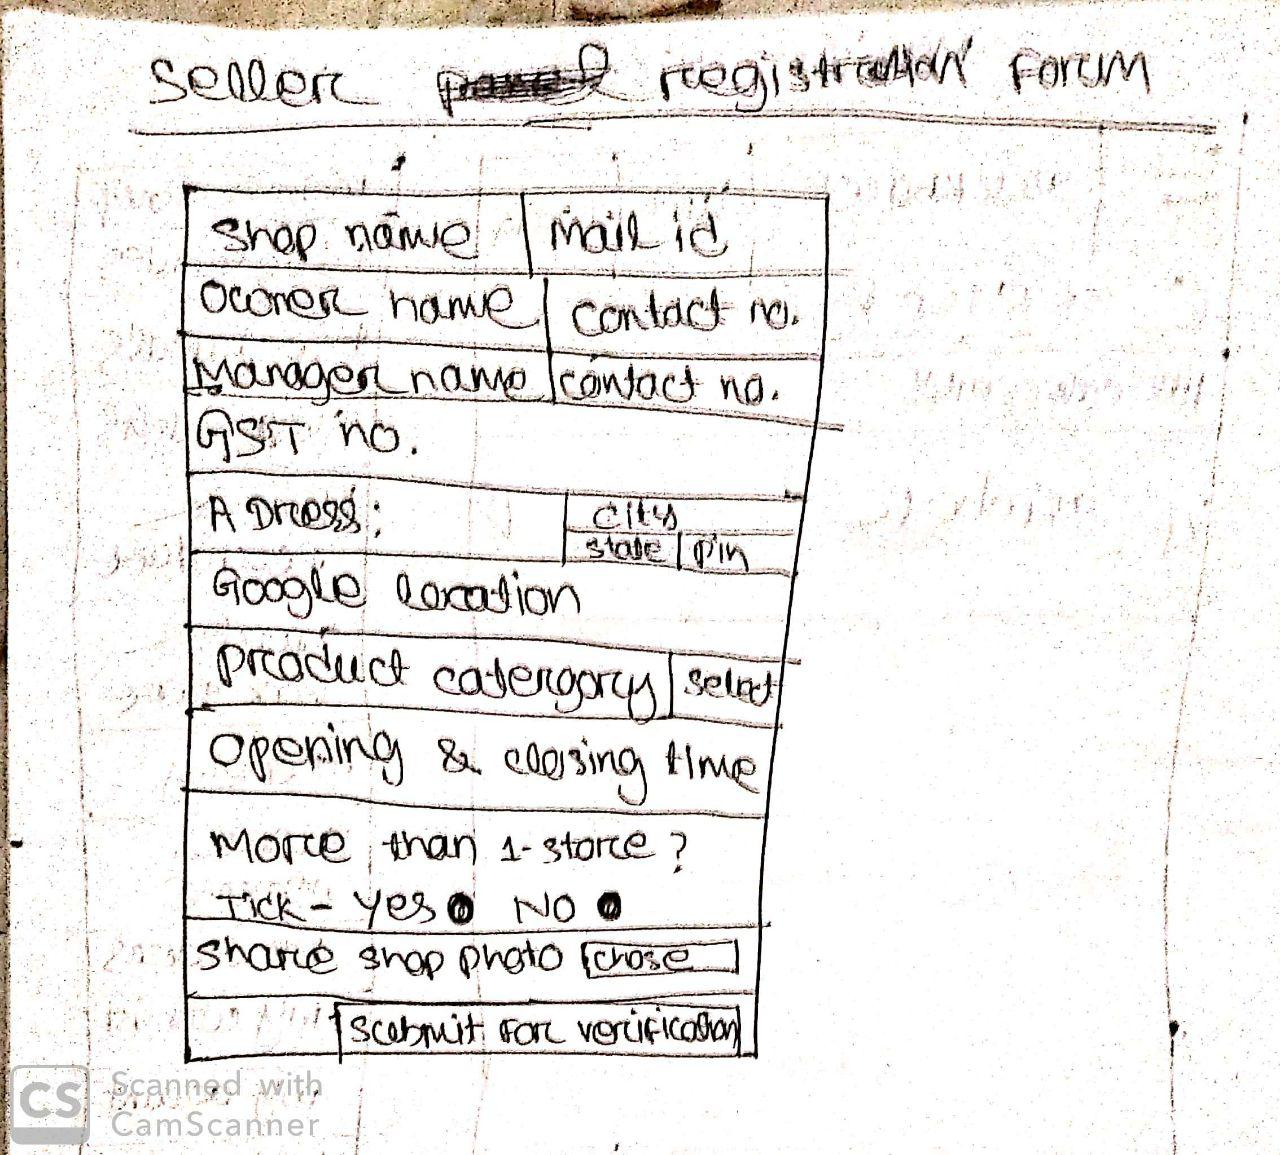 Seller registration Form
Shop name mail id
Owner name contact no.
Manager name contact no.
GST no.
ADress:
city
state pin
Google location
product catergory select
opening & closing time
more than 1-store?
Tick - yes NO
share shop photo chose
Submit for verification
CS Scanned with
CamScanner